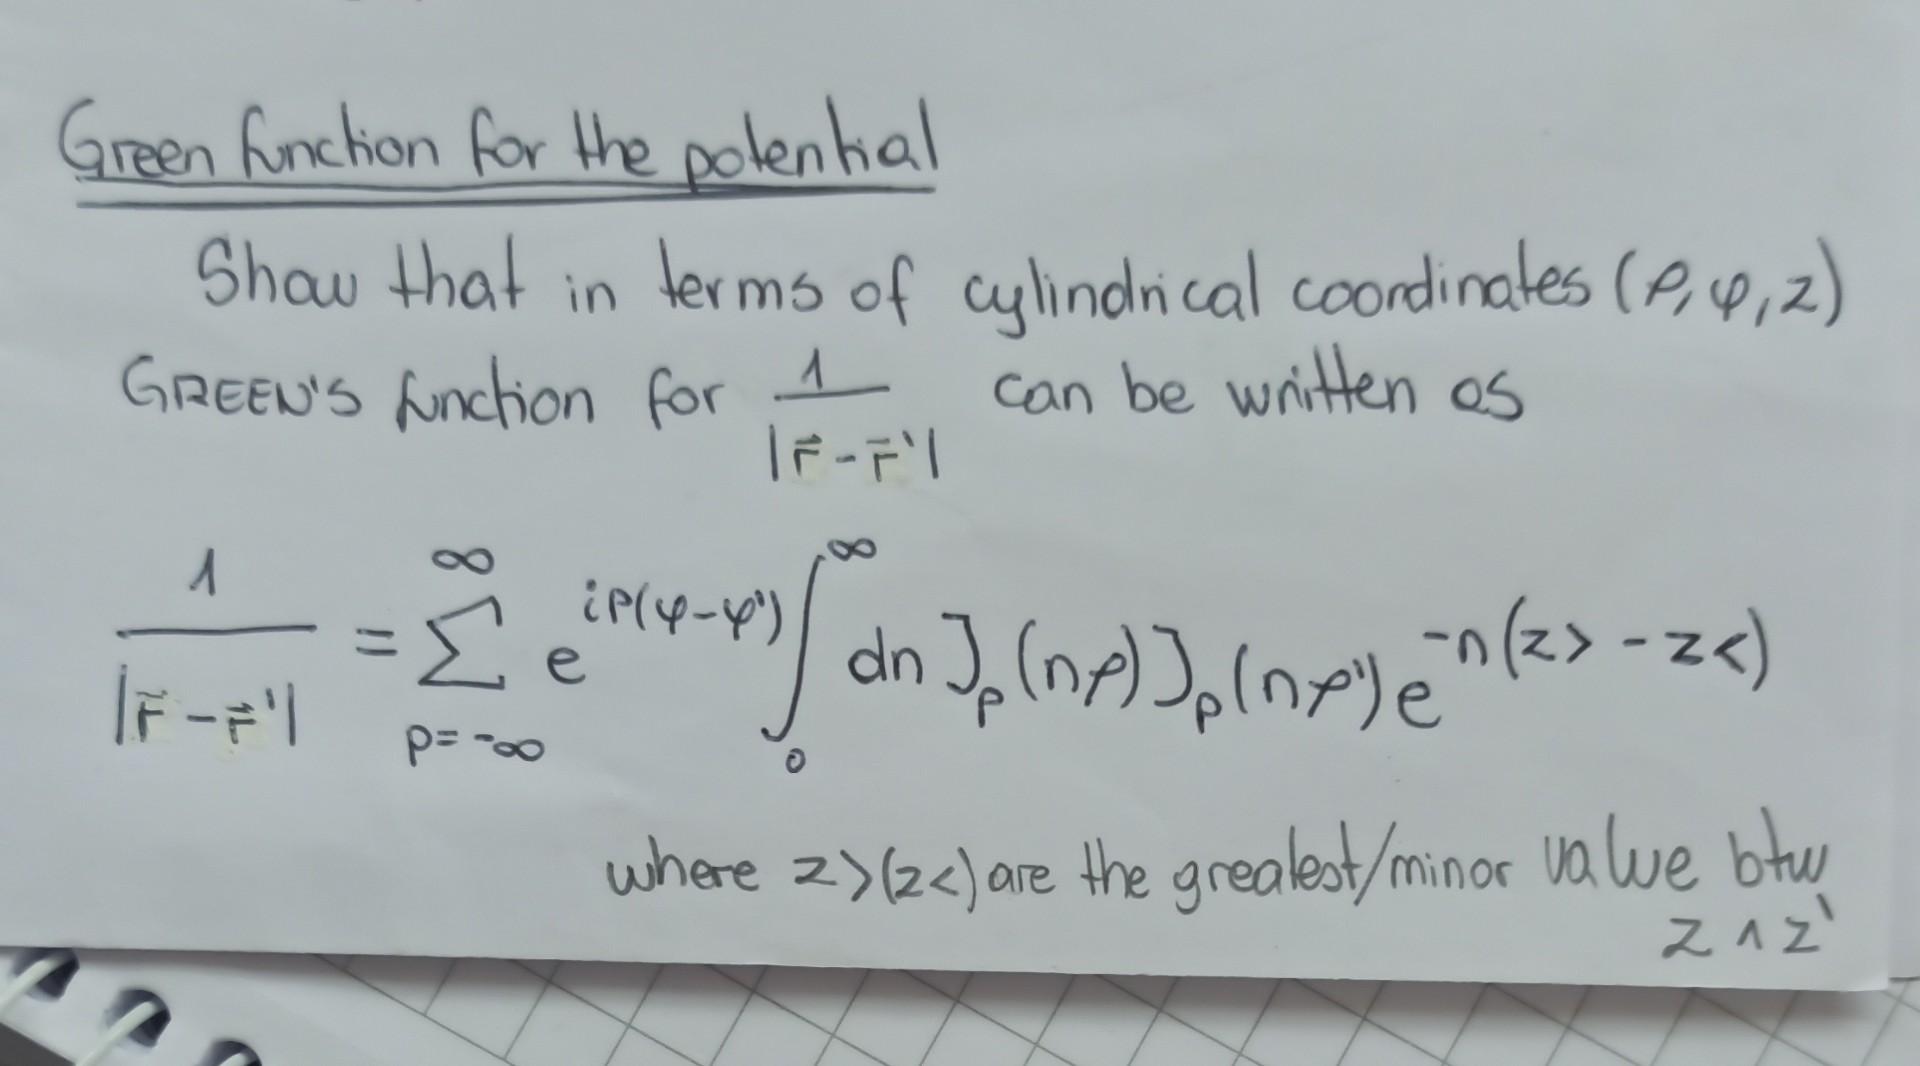 Green function for the potential
Show that in terms of cylindrical coordinates (ρ, φ, z)
GREEN'S function for 1/|r⃗ - r⃗'| can be written as
1/|r⃗ - r⃗'| = ∑_{p=-∞}^{∞} e^{ip(φ-φ')} ∫_0^∞ dn J_p(nρ) J_p(nρ') e^{-n(z> - z<)}
where z>(z<) are the greatest/minor value btw
z ∧ z'